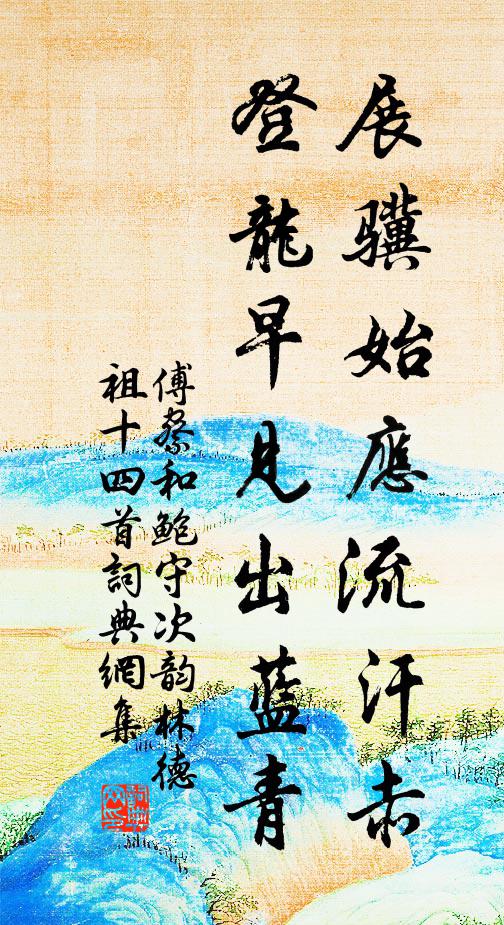 展驥始應流汗赤
登龍早見出藍青
傅察和鮑守次韵林德
祖十四首詞典網集